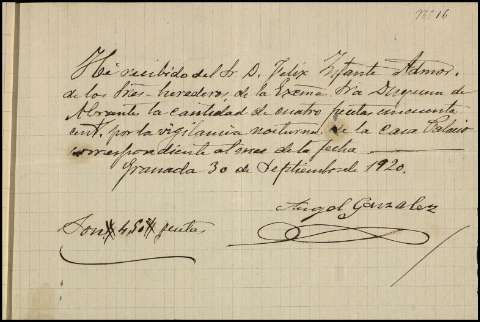 Nº 16
He recibido del Sr. D. Felix Infante Admor.
de los Sres. herederos de la Excma. Sra Duquesa de
Abrante la cantidad de cuatro pesetas cincuenta
cent. por la vigilancia nocturna de la Casa Palacio
correspondiente al mes de la fecha
Granada 30 de Septiembre de 1920.
Angel Gonzalez
Son # 4,50 # pesetas